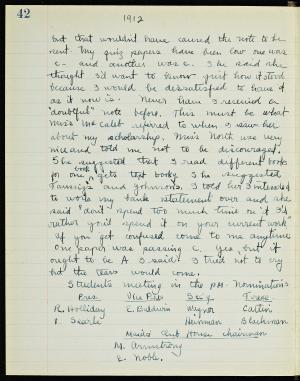 42
1912
but that wouldn't have caused the note to be
sent. My quiz papers have been low one was
c- and another was c. She said she
thought I'd want to know just how it stood
because I would be dissatisfied to have it
as it now is. Never have I received a
"doubtful" note before. This must be what
Miss McCaleb referred to when I saw her
about my scholarship. Miss North was very
nice and told me not to be discouraged.
She suggested that I read different books
book
for one gets that boky. She suggested
Taussig's and Johnson's. I told her I intended
to work my bank statement over and she
said "don't spend too much time on it I'd
rather you'd spend it on your current work
If you get confused come to me anytime
One paper was passing c. Yes, but it
ought to be A I said. I tried not to cry
but the tears would come.
Students meeting in the P.M. Nominations
Pres. Vice Pres Sec'y Treas.
R. Holliday E. Baldwin Wignor Catlin
I. Searle Hinman Blackman
Maids Club House chairman
M. Armstrong
E. Noble.